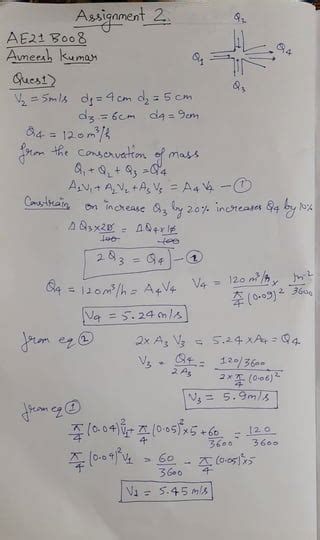 Assignment 2.
AE21B008
Avneesh Kumar
Ques1)
Q2
Q1
Q4
Q3
V2 = 5m/s d1 = 4cm d2 = 5cm
d3 = 6cm d4 = 9cm
Q4 = 120m³/h
from the conservation of mass
Q1 + Q2 + Q3 = Q4
A1V1 + A2V2 + A3V3 = A4V4 — ①
Constrain on increase Q3 by 20% increases Q4 by 10%
ΔQ3×20/100 = ΔQ4×10/100
2Q3 = Q4 — ②
Q4 = 120m³/h = A4V4 V4 = 120 m³/h / π/4 (0.09)² × m⁻²/3600
V4 = 5.24m/s
from eq ② 2×A3V3 = 5.24×A4 = Q4
V3 = Q4/2A3 = 120/3600 / 2×π/4 (0.06)²
V3 = 5.9m/s
from eq ①
π/4 (0.04)²V1 + π/4 (0.05)²×5 + 60/3600 = 120/3600
π/4 (0.04)²V1 = 60/3600 - π/4 (0.05)²×5
V1 = 5.45m/s